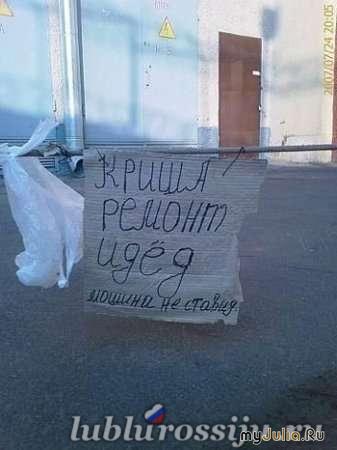 2007/07/24 20:05
КРИША
РЕМОНТ
идёд
мошина не ставид
lublurossiju.ru
myJulia.Ru